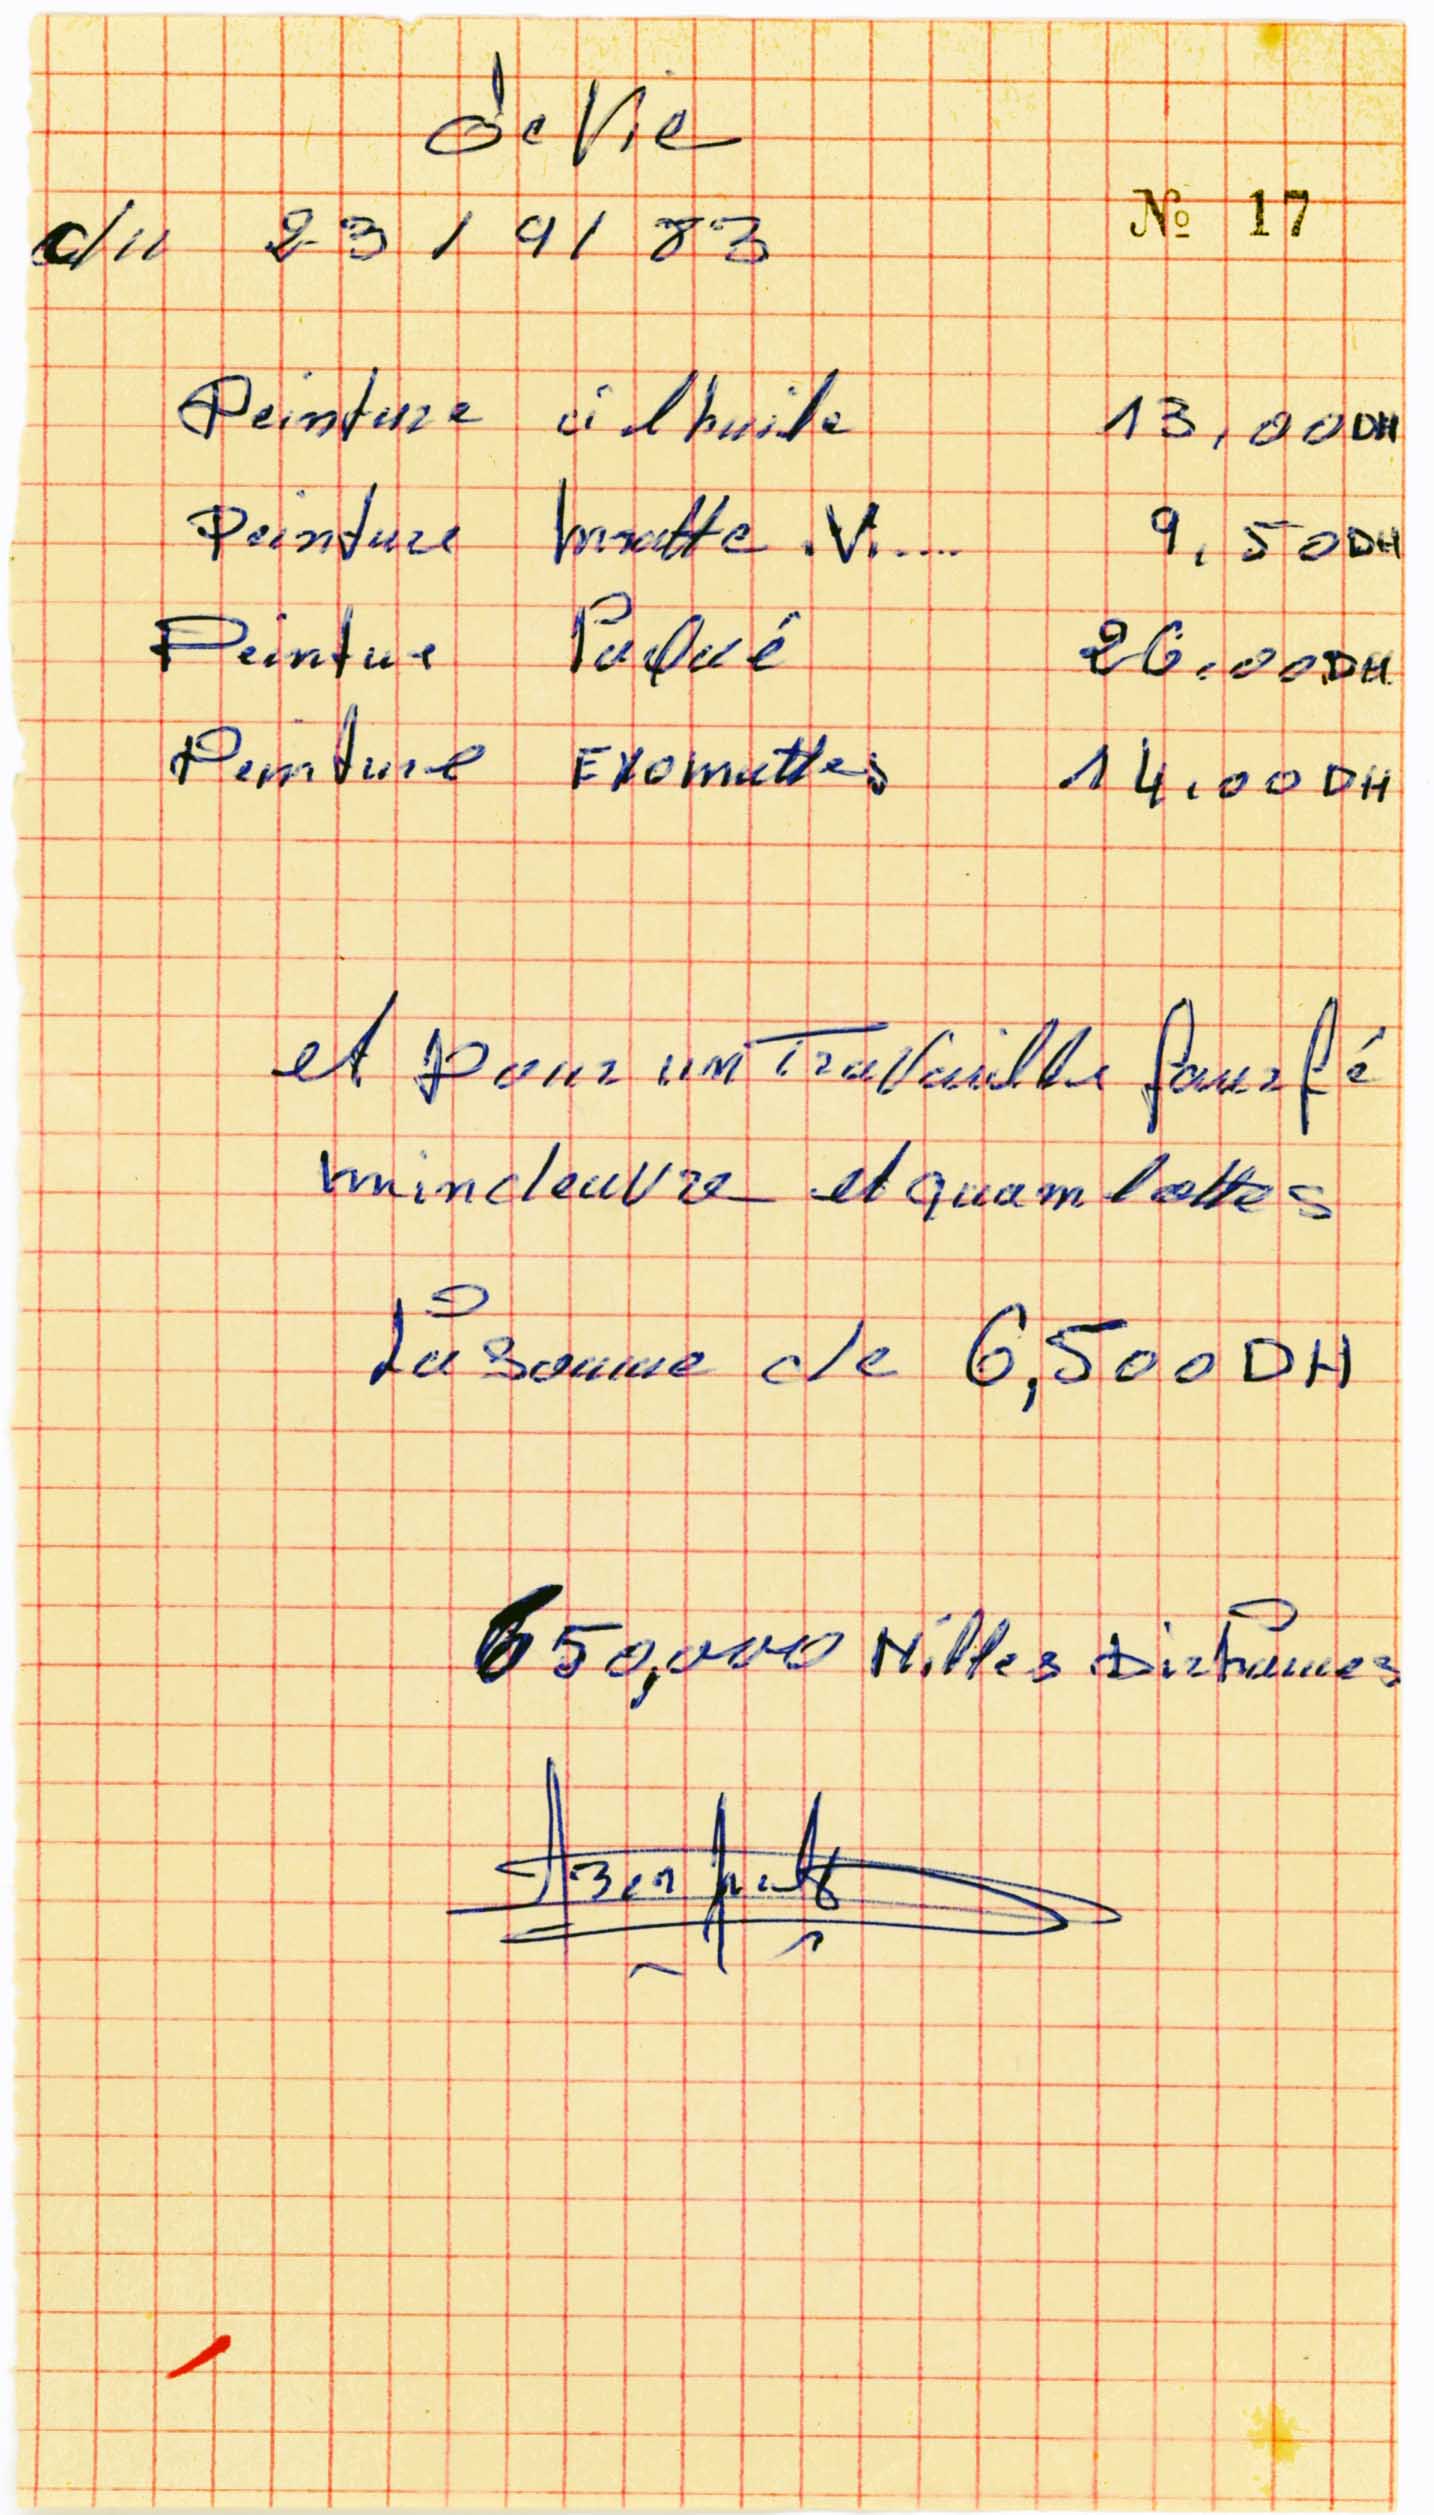 deVie
du 23 / 9 / 83
№ 17
Peinture à lhuile 13,00 DH
Peinture matte .V..... 9,50 DH
Peintue laqué 26.00 DH
Peinture Exomattes 14.00 DH
et pour un Travaille forfé
maindeuvre et quamlottes
La somme de 6,500 DH
650,000 Milles Dirhames